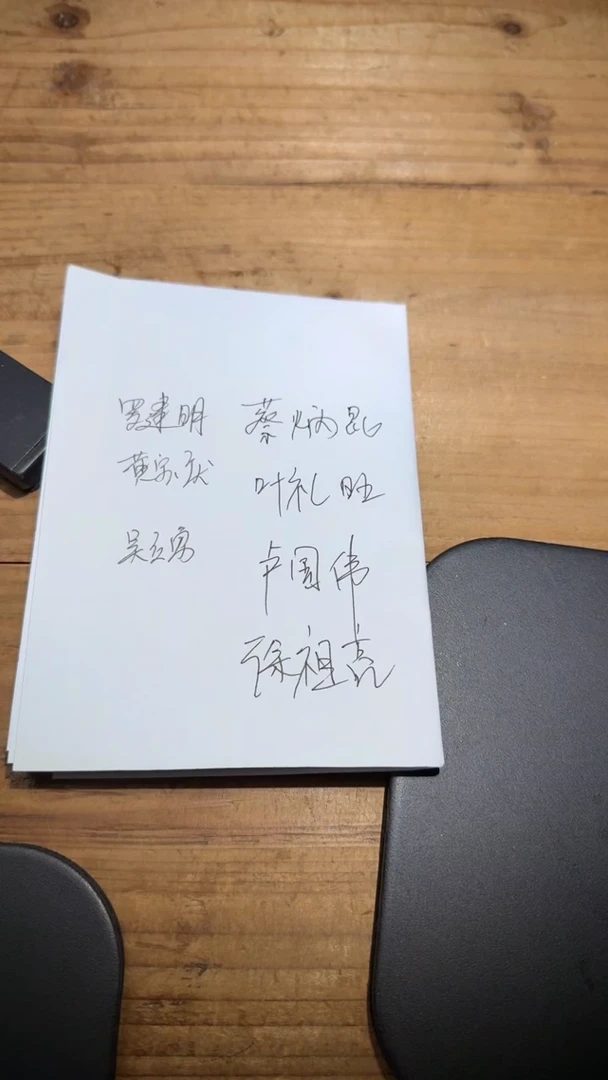 罗建明
蔡炳昆
黄家
叶礼旺
吴立勇
卢国伟
徐祖亮